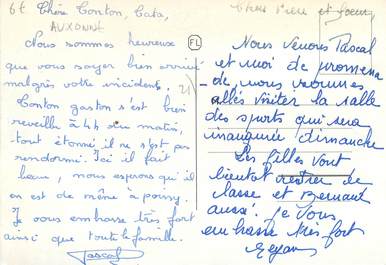 6t Chère Tonton, Tata,
AUXONNE
Nous sommes heureux
que vous soyer bien arrivé
malgrès votre incidents.
Tonton gaston s'est bien
reveillé à 4h du matin,
tout étonné il ne s'est pas
rendormi. Ici il fait
beau, nous esperons qu'il
en est de même à poissy.
Je vous embrasse très fort
ainsi que toute la famille.
Pascal
FL
21
Chers Frère et soeur
Nous Venons Pascal
et moi de promena
-de, nous sommes
allés visiter la salle
des sports qui sera
inaugurée dimanche
Les filles vont
bientôt rentrer de
classe et Bernard
aussi. Je Vous
embrasse très fort